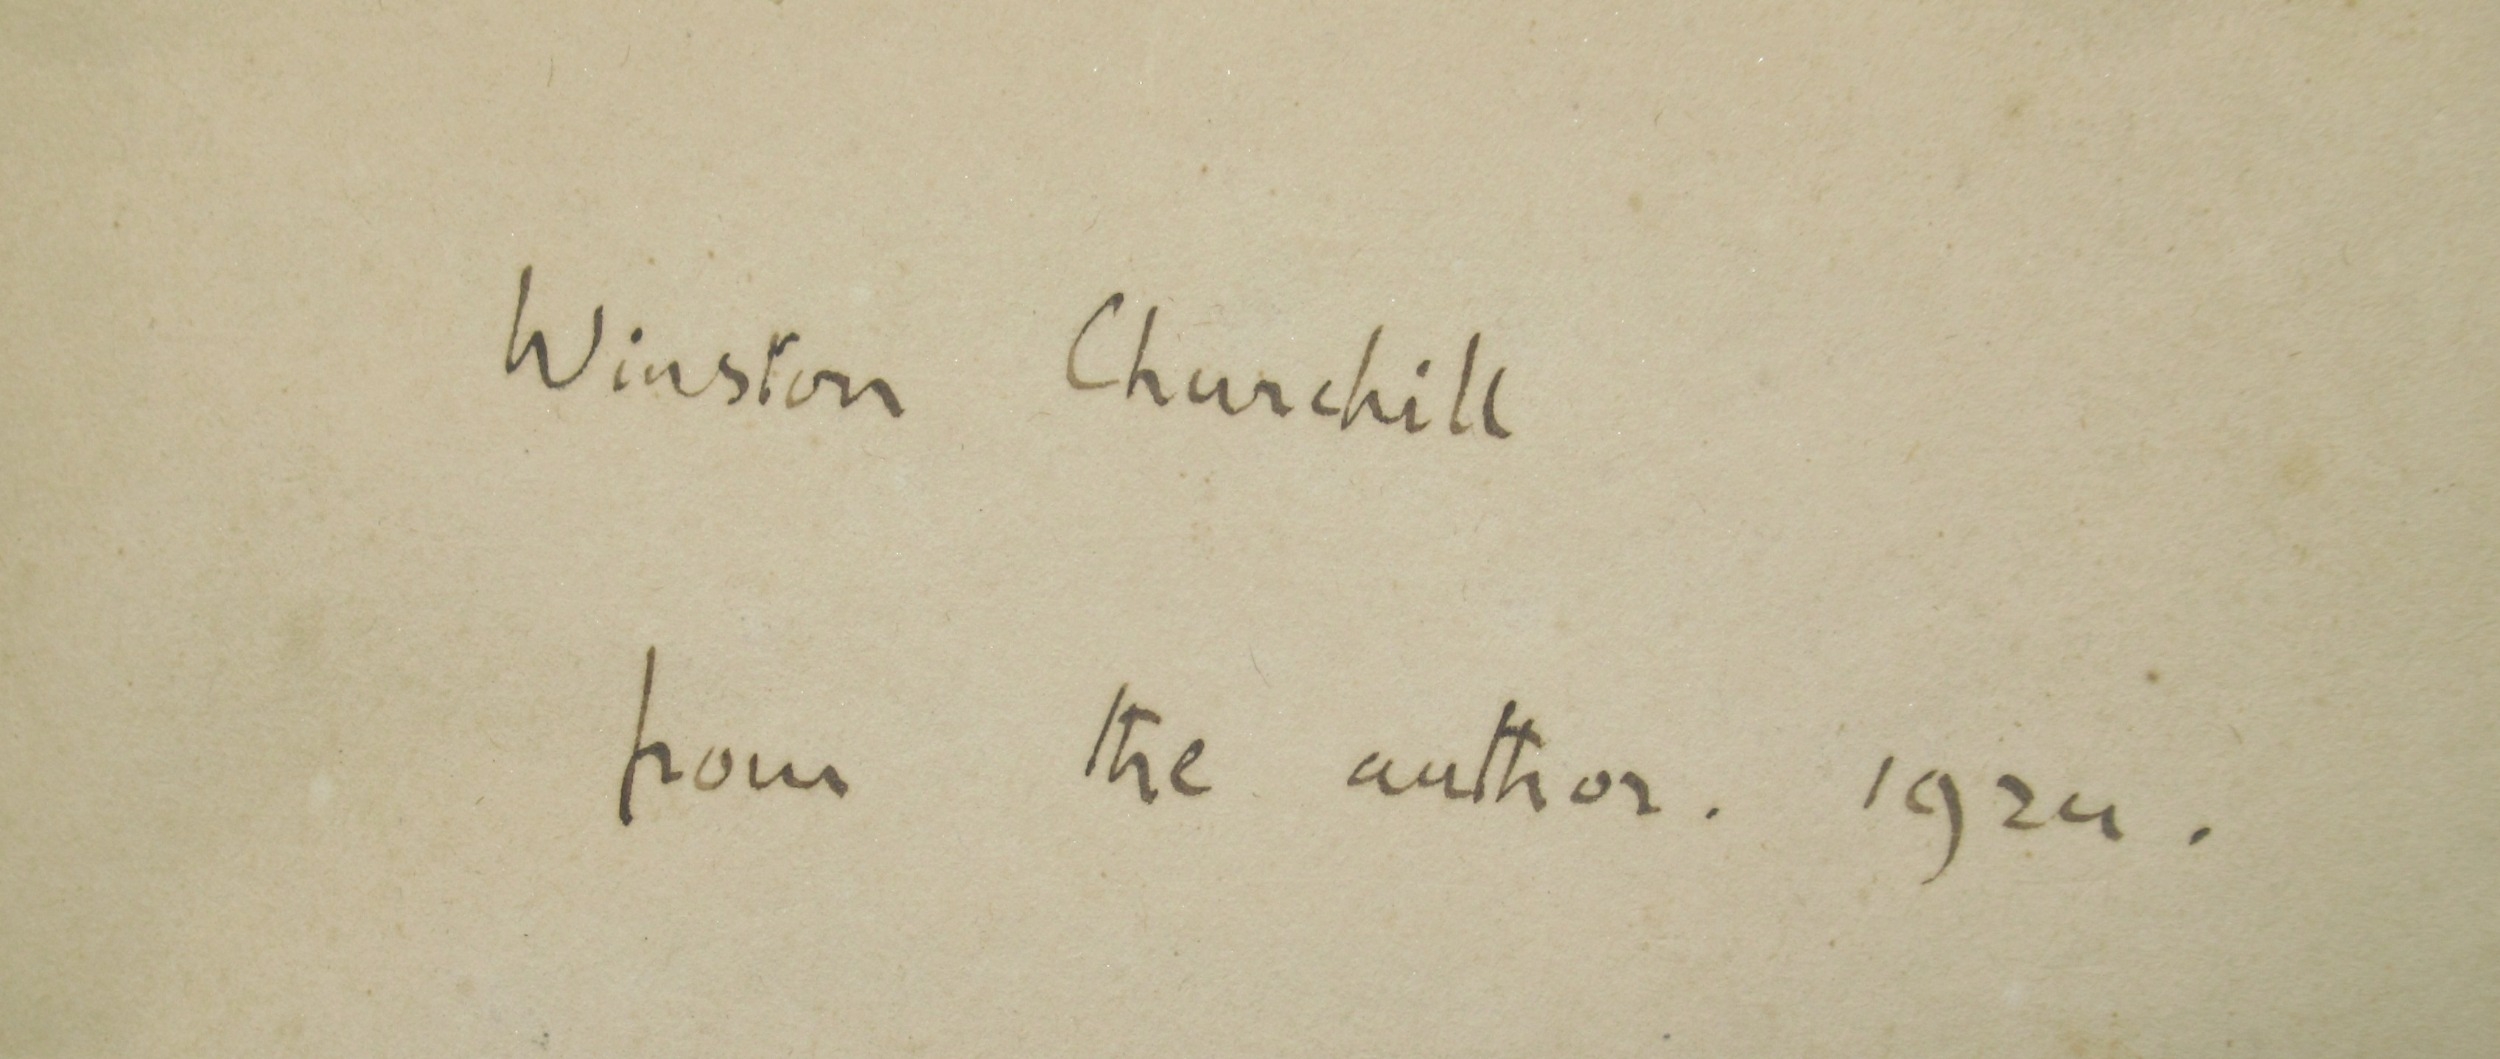 Winston Churchill
from the author. 1924.